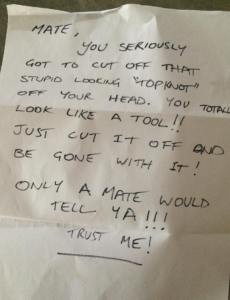 MATE,
YOU SERIOUSLY
GOT TO CUT OFF THAT
STUPID LOOKING "TOPKNOT"
OFF YOUR HEAD. YOU TOTALL
LOOK LIKE A TOOL!!
JUST CUT IT OFF AND
BE GONE WITH IT!
ONLY A MATE WOULD
TELL YA!!!
TRUST ME!